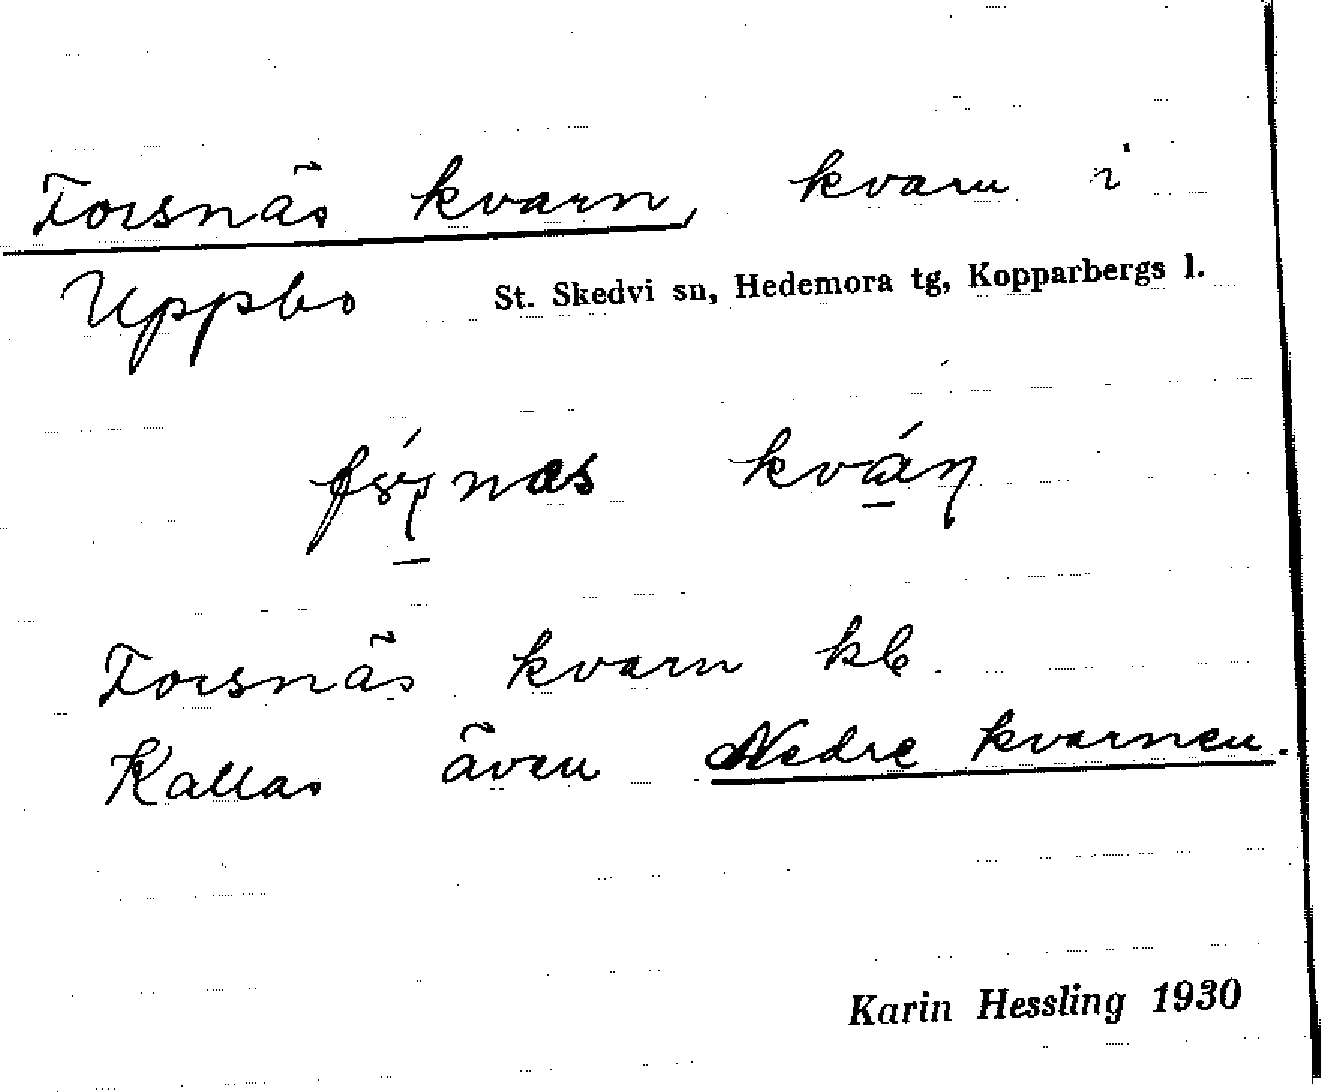 Forsnäs kvarn, kvarn i
Uppbo St. Skedvi sn, Hedemora tg, Kopparbergs l.
Forsnäs kvarn kb.
Kallas även Nedre kvarnen.
Karin Hessling 1930